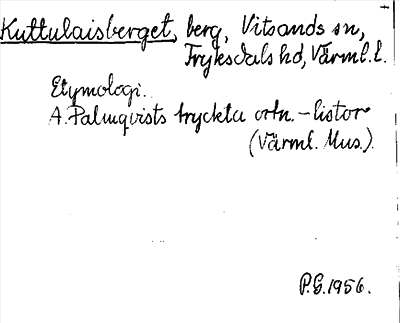 Kuttulaisberget, berg, Vitsands sn,
Fryksdals hd, Värml. l.
Etymologi.
A. Palmqvists tryckta ortn.-listor
(Värml. Mus.).
P.G. 1956.